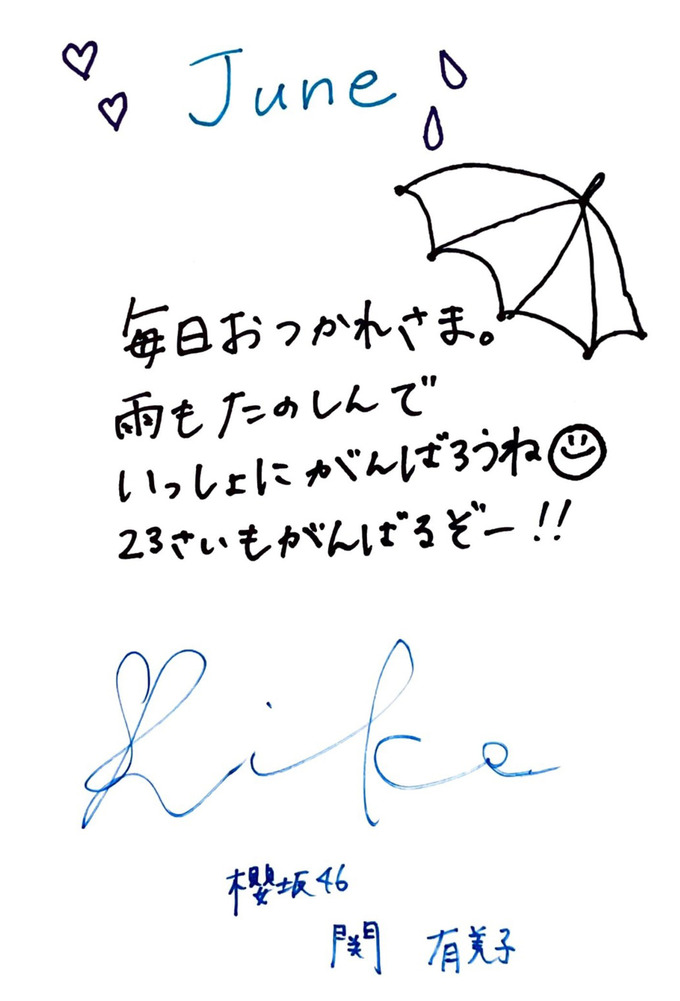 June
毎日おつかれさま。
雨もたのしんで
いっしょにがんばろうね
23さいもがんばるぞー!!
櫻坂46
関 有美子